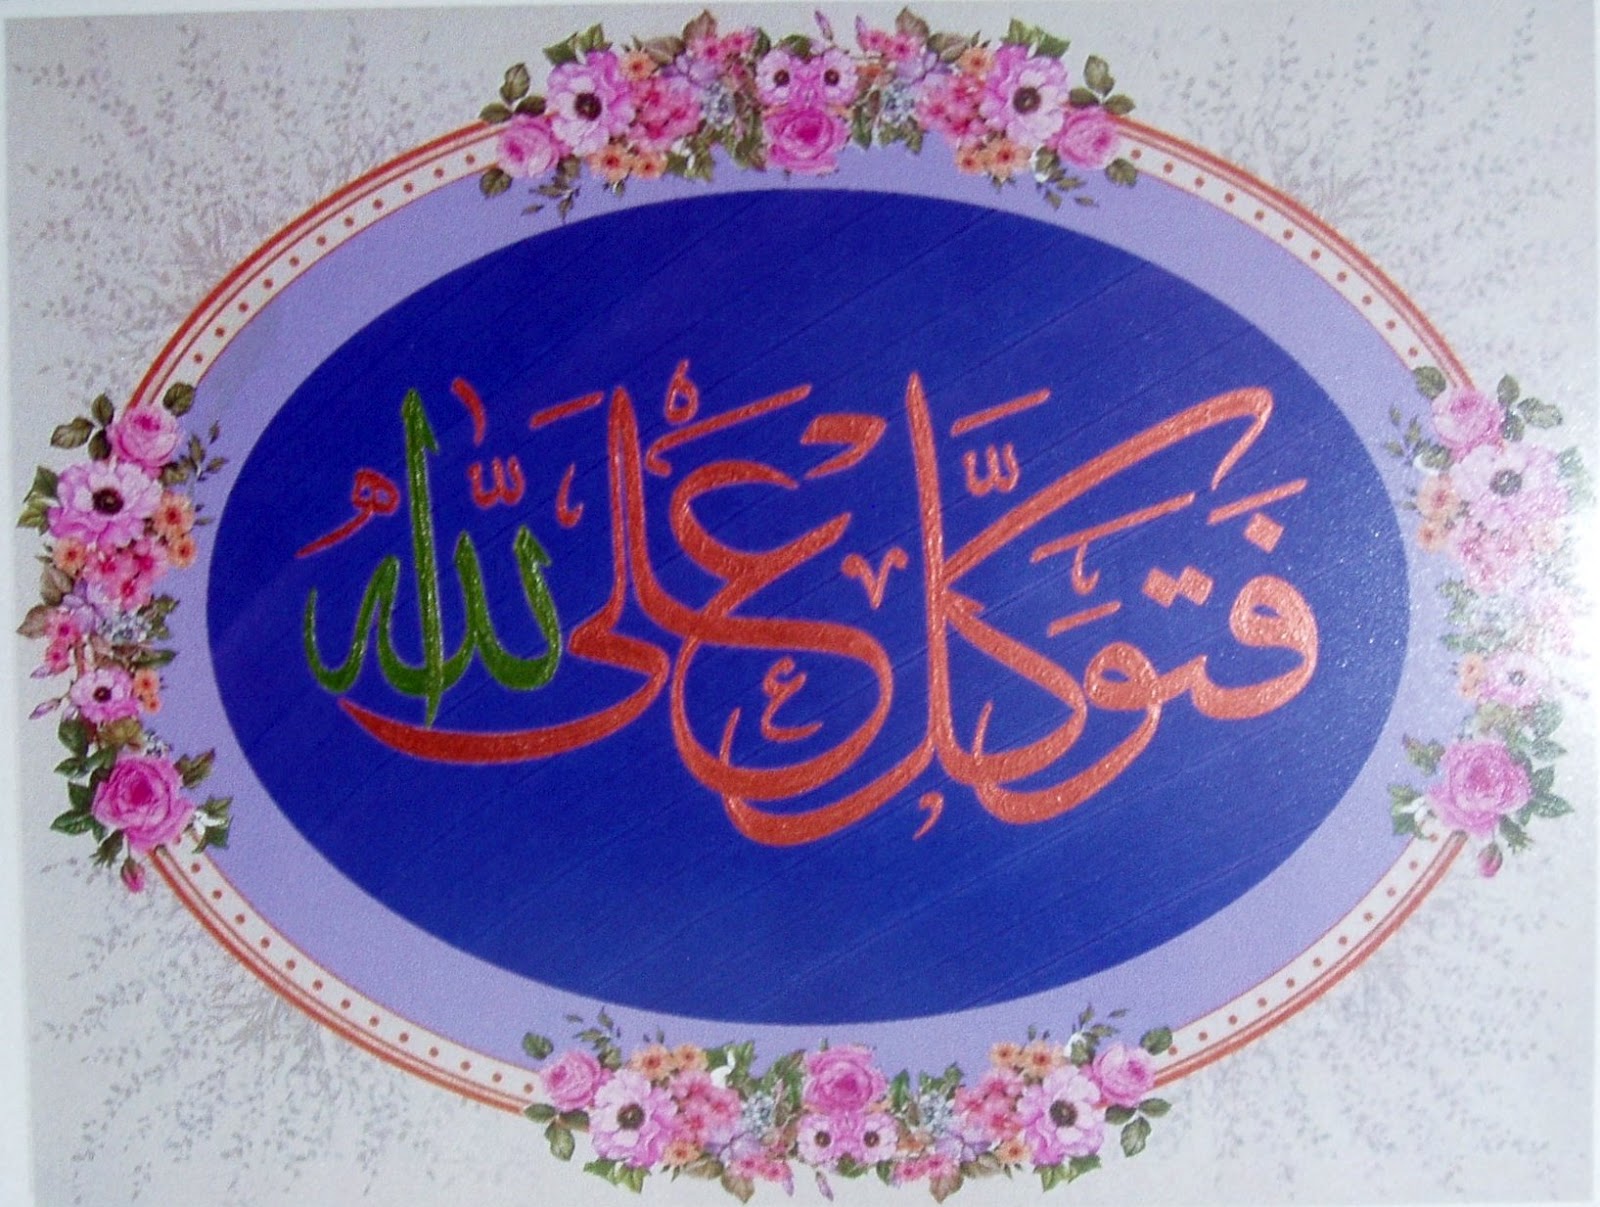 فَتَوَكَّلْ عَلَى اللّٰهِ